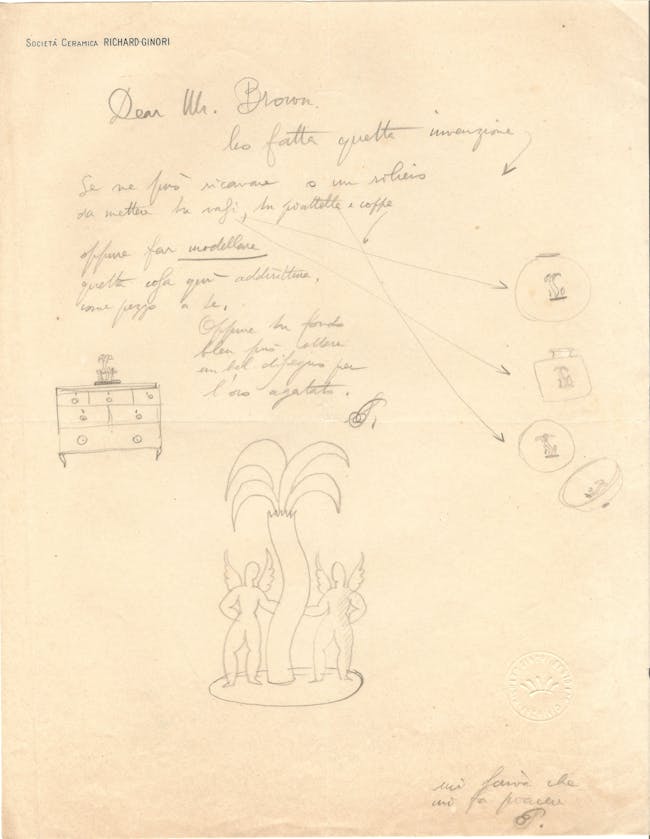 Società Ceramica RICHARD-GINORI
Dear Mr. Brown.
ho fatta questa invenzione
Se ne può ricavare o un rilievo
da mettere su vasi, su piattelle e coppe
oppure far modellare
questa cosa qui addirittura,
come pezzo a se.
Oppure su fondo
bleu può essere
un bel disegno per
l'oro agatato.
P.
che
mi fa piacere
P.